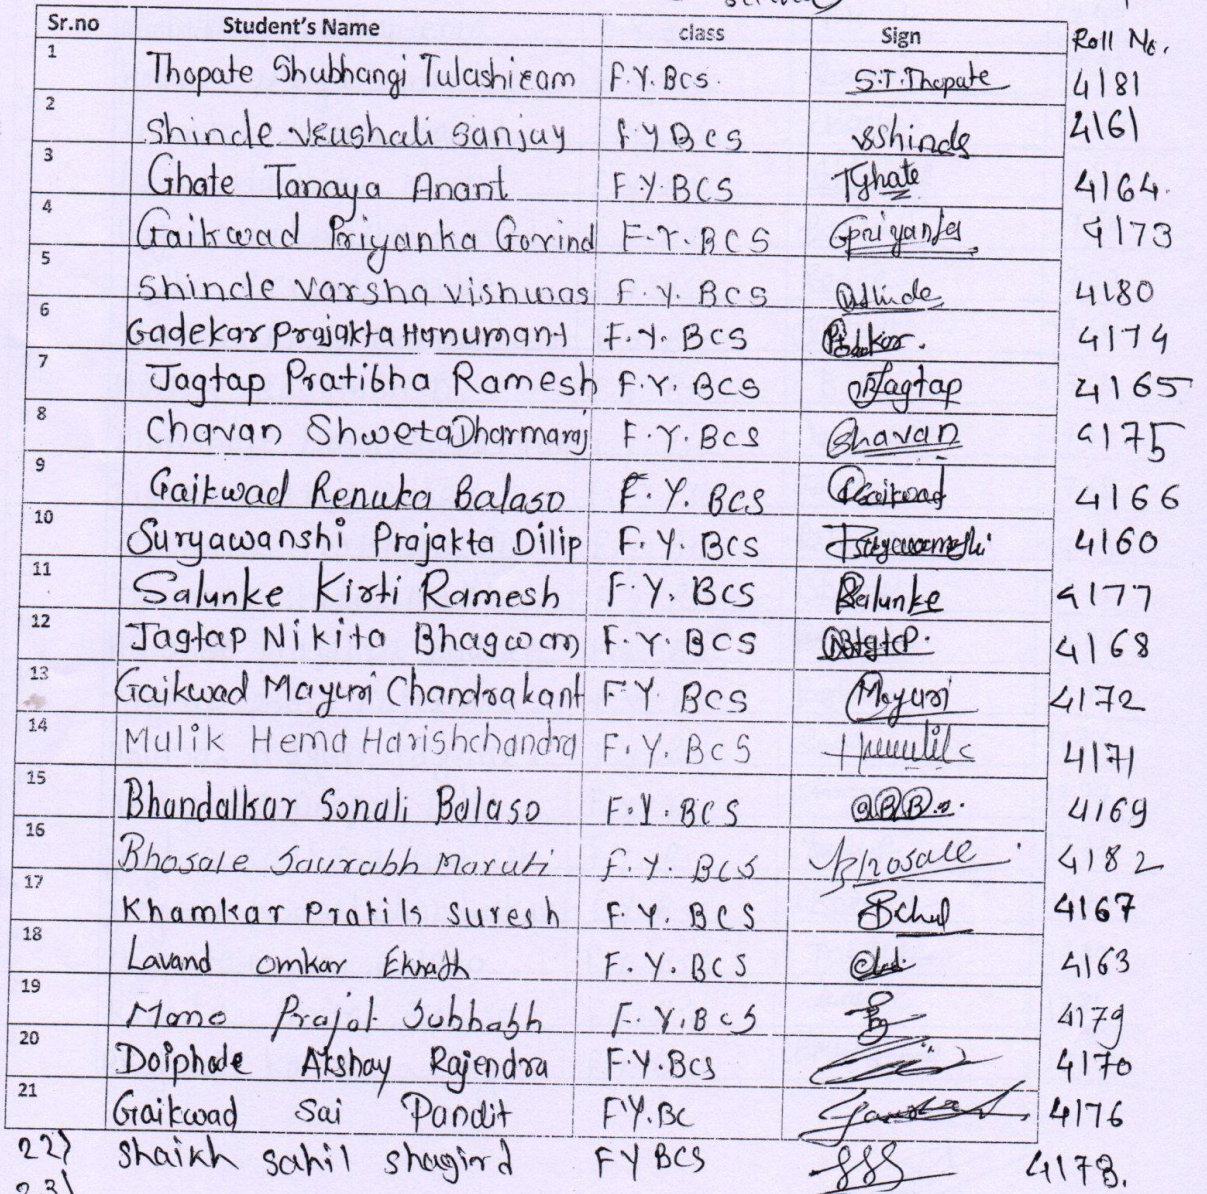 Sr.no Student's Name class Sign Roll No.
1 Thopate Shubhangi Tulashiram F.Y.BCS. S.T.Thopate 4181
2 Shinde Vaushali Sanjay F Y B C S vsshinde 4161
3 Ghate Tanaya Anant F Y. BCS TGhate 4164.
4 Gaikwad Priyanka Govind F.Y. BCS Gpriyanka 4173
5 Shinde Varsha Vishwas F.Y. BCS 4180
6 Gadekar Prajakta Hanumant F.Y. BCS 4174
7 Jagtap Pratibha Ramesh F.Y. BCS Jagtap 4165
8 Chavan Shweta Dharmaraj F.Y. BCS Chavan 4175
9 Gaikwad Renuka Balaso F.Y. BCS RGaikwad 4166
10 Suryawanshi Prajakta Dilip F.Y. BCS 4160
11 Salunke Kirti Ramesh F.Y. BCS Salunke 4177
12 Jagtap Nikita Bhagwan F.Y. BCS 4168
13 Gaikwad Mayuri Chandrakant F Y. BCS Mayuri 4172
14 Mulik Hema Harishchandra F.Y. BCS 4171
15 Bhandalkar Sonali Balaso F.Y. BCS 4169
16 Bhosale Saurabh Maruti F.Y. BCS Bhosale 4182
17 Khamkar Pratik Suresh F.Y. BCS 4167
18 Lavand Omkar Eknath F.Y. BCS 4163
19 Mane Prajot Subhash F.Y.BCS 4179
20 Doiphode Akshay Rajendra F.Y.BCS 4170
21 Gaikwad Sai Pandit FY.BC 4176
22) Shaikh Sahil Shagird FYBCS SSS 4178.
23)